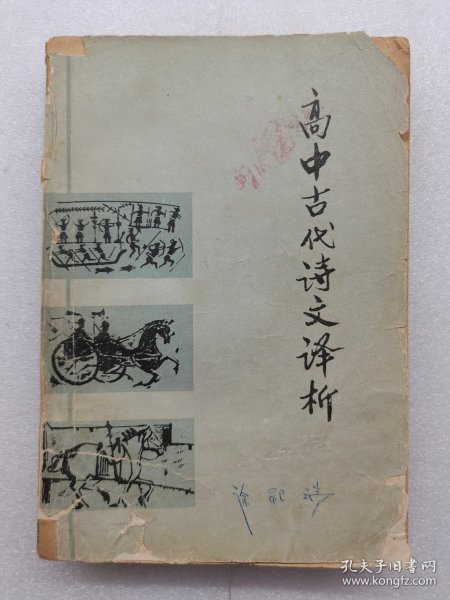 高中古代诗文译析
孔夫子旧书网
www.kongfz.com